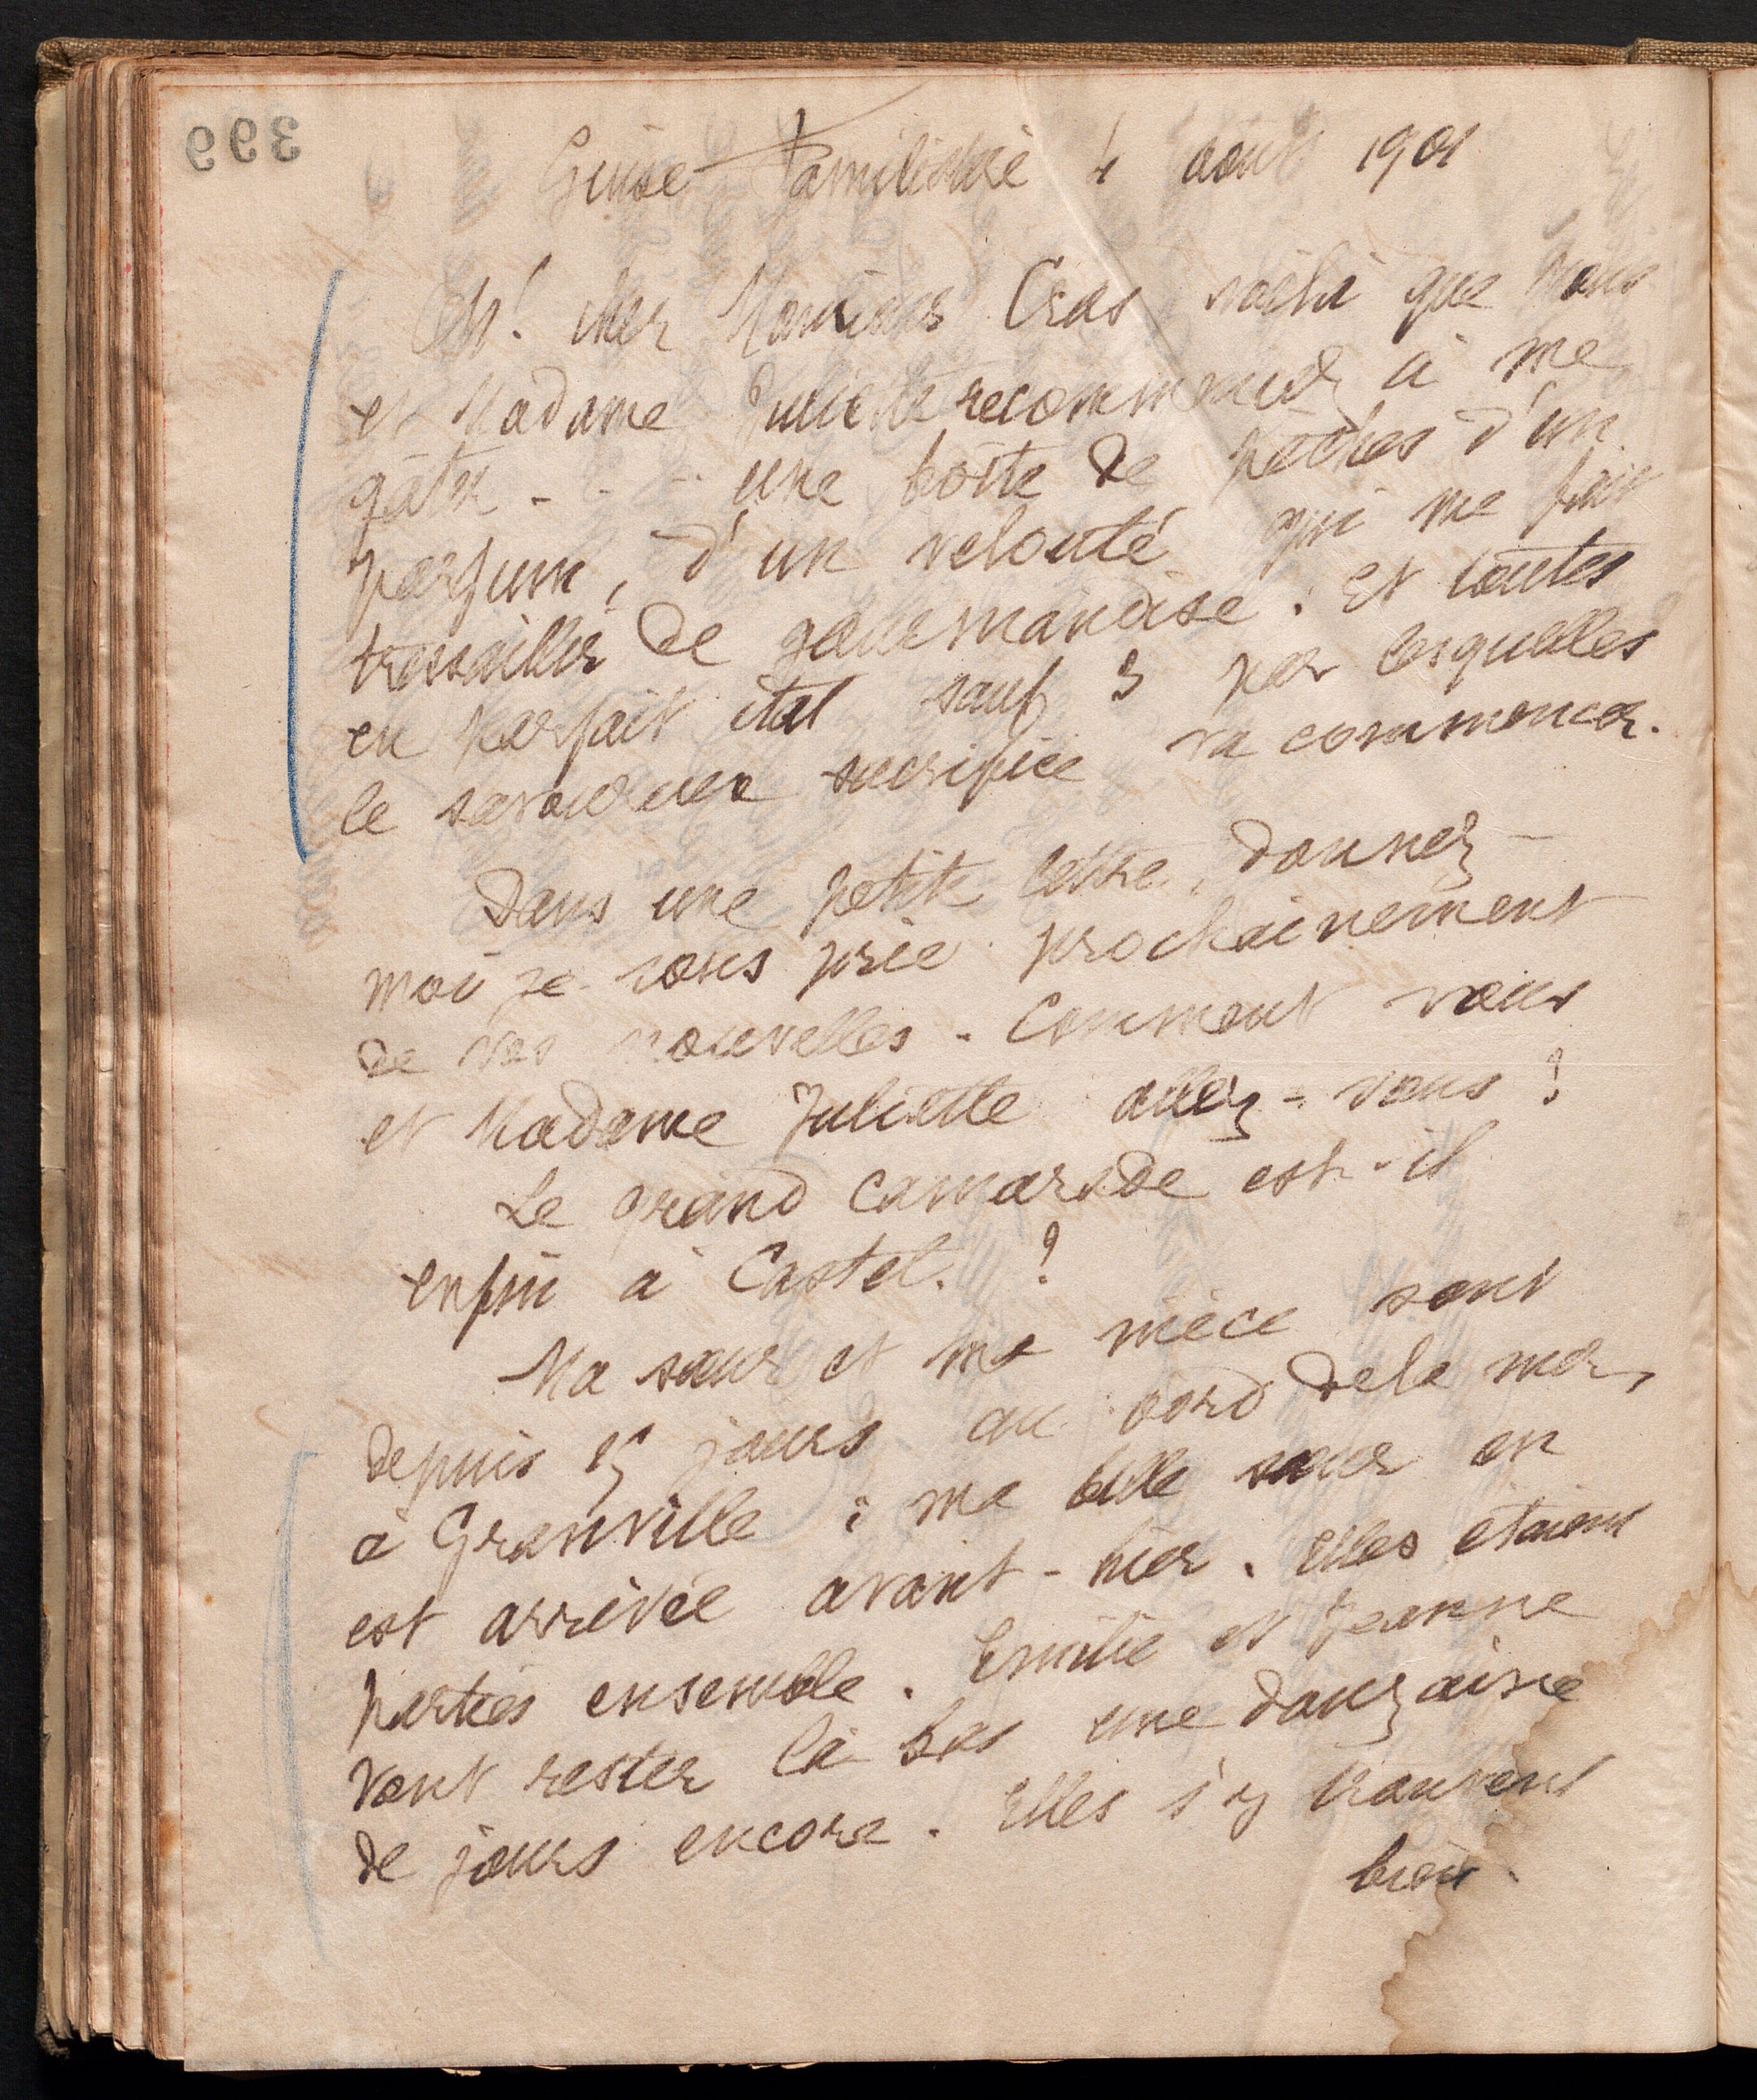 399
Guise Familistère 4 août 1901
Oh! cher Monsieur Cros voilà que vous
et Madame Juliette recommencez à me
gâter - - - une boîte de pêches d'un
parfum, d'un velouté qui me fait
tressaillir de gourmandise. Et toutes
en parfait état sauf 3 par lesquelles
le savoureux sacrifice va commencer.
Dans une petite lettre, donnez-
moi je vous prie prochainement
de vos nouvelles. Comment vous
et Madame Juliette allez-vous ?
Le grand camarade est-il
enfin à Castel. ?
Ma sœur et ma nièce sont
depuis 15 jours au bord de la mer,
à Granville ; ma belle sœur en
est arrivée avant-hier. Elles étaient
parties ensemble. Emilie et Jeanne
vont rester là bas une douzaine
de jours encore. Elles s'y trouvent
bien.